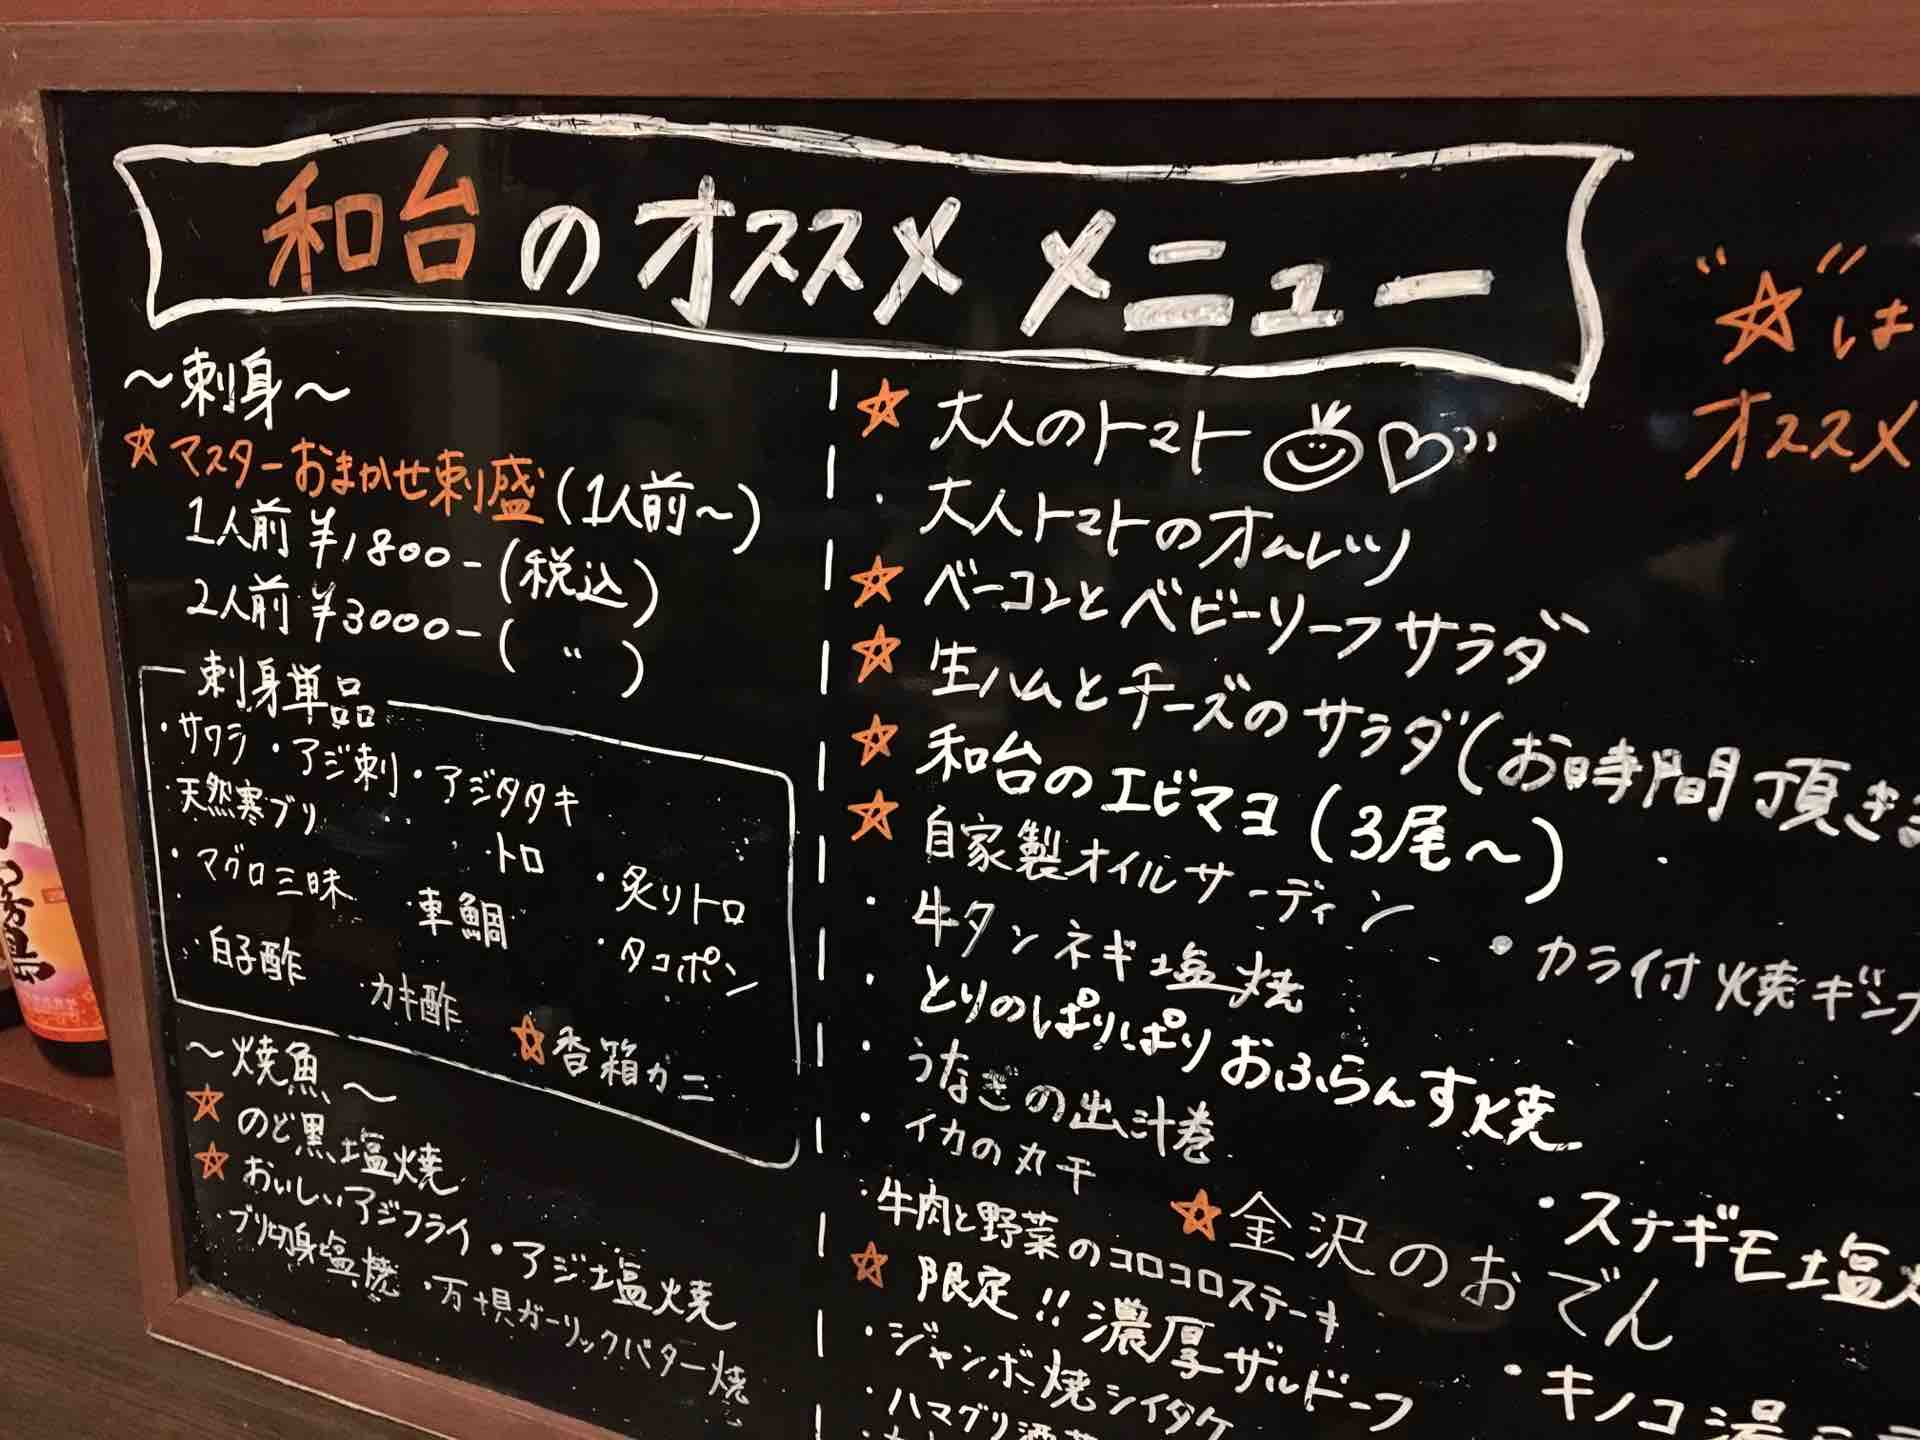 和台のオススメ メニュー
"☆"は
オススメ
〜刺身〜
☆マスターおまかせ刺盛(1人前〜)
1人前 ¥1800-(税込)
2人前 ¥3000-( 〃 )
刺身単品
・サワラ ・アジ刺 ・アジタタキ
天然寒ブリ
・トロ
・マグロ三昧
・炙りトロ
車鯛
・タコポン
白子酢
・カキ酢
☆香箱ガニ
〜焼魚〜
☆のど黒塩焼
☆おいしいアジフライ ・アジ塩焼
・ブリ切身塩焼 ・万寿貝ガーリックバター焼
☆大人のトマト
・大人トマトのオムレツ
☆ベーコンとベビーリーフサラダ
☆生ハムとチーズのサラダ(お時間頂きま
☆和台のエビマヨ(3尾〜)
☆自家製オイルサーディン
・牛タンネギ塩焼 ・カラ付焼ギンナ
・とりのぱりぱりおふらんす焼
・うなぎの出汁巻
・イカの丸干
・牛肉と野菜のコロコロステーキ
☆金沢のおでん
・スナギモ塩
☆限定!!濃厚ザルドーフ
・ジャンボ焼シイタケ
・キノコ湯
・ハマグリ酒蒸